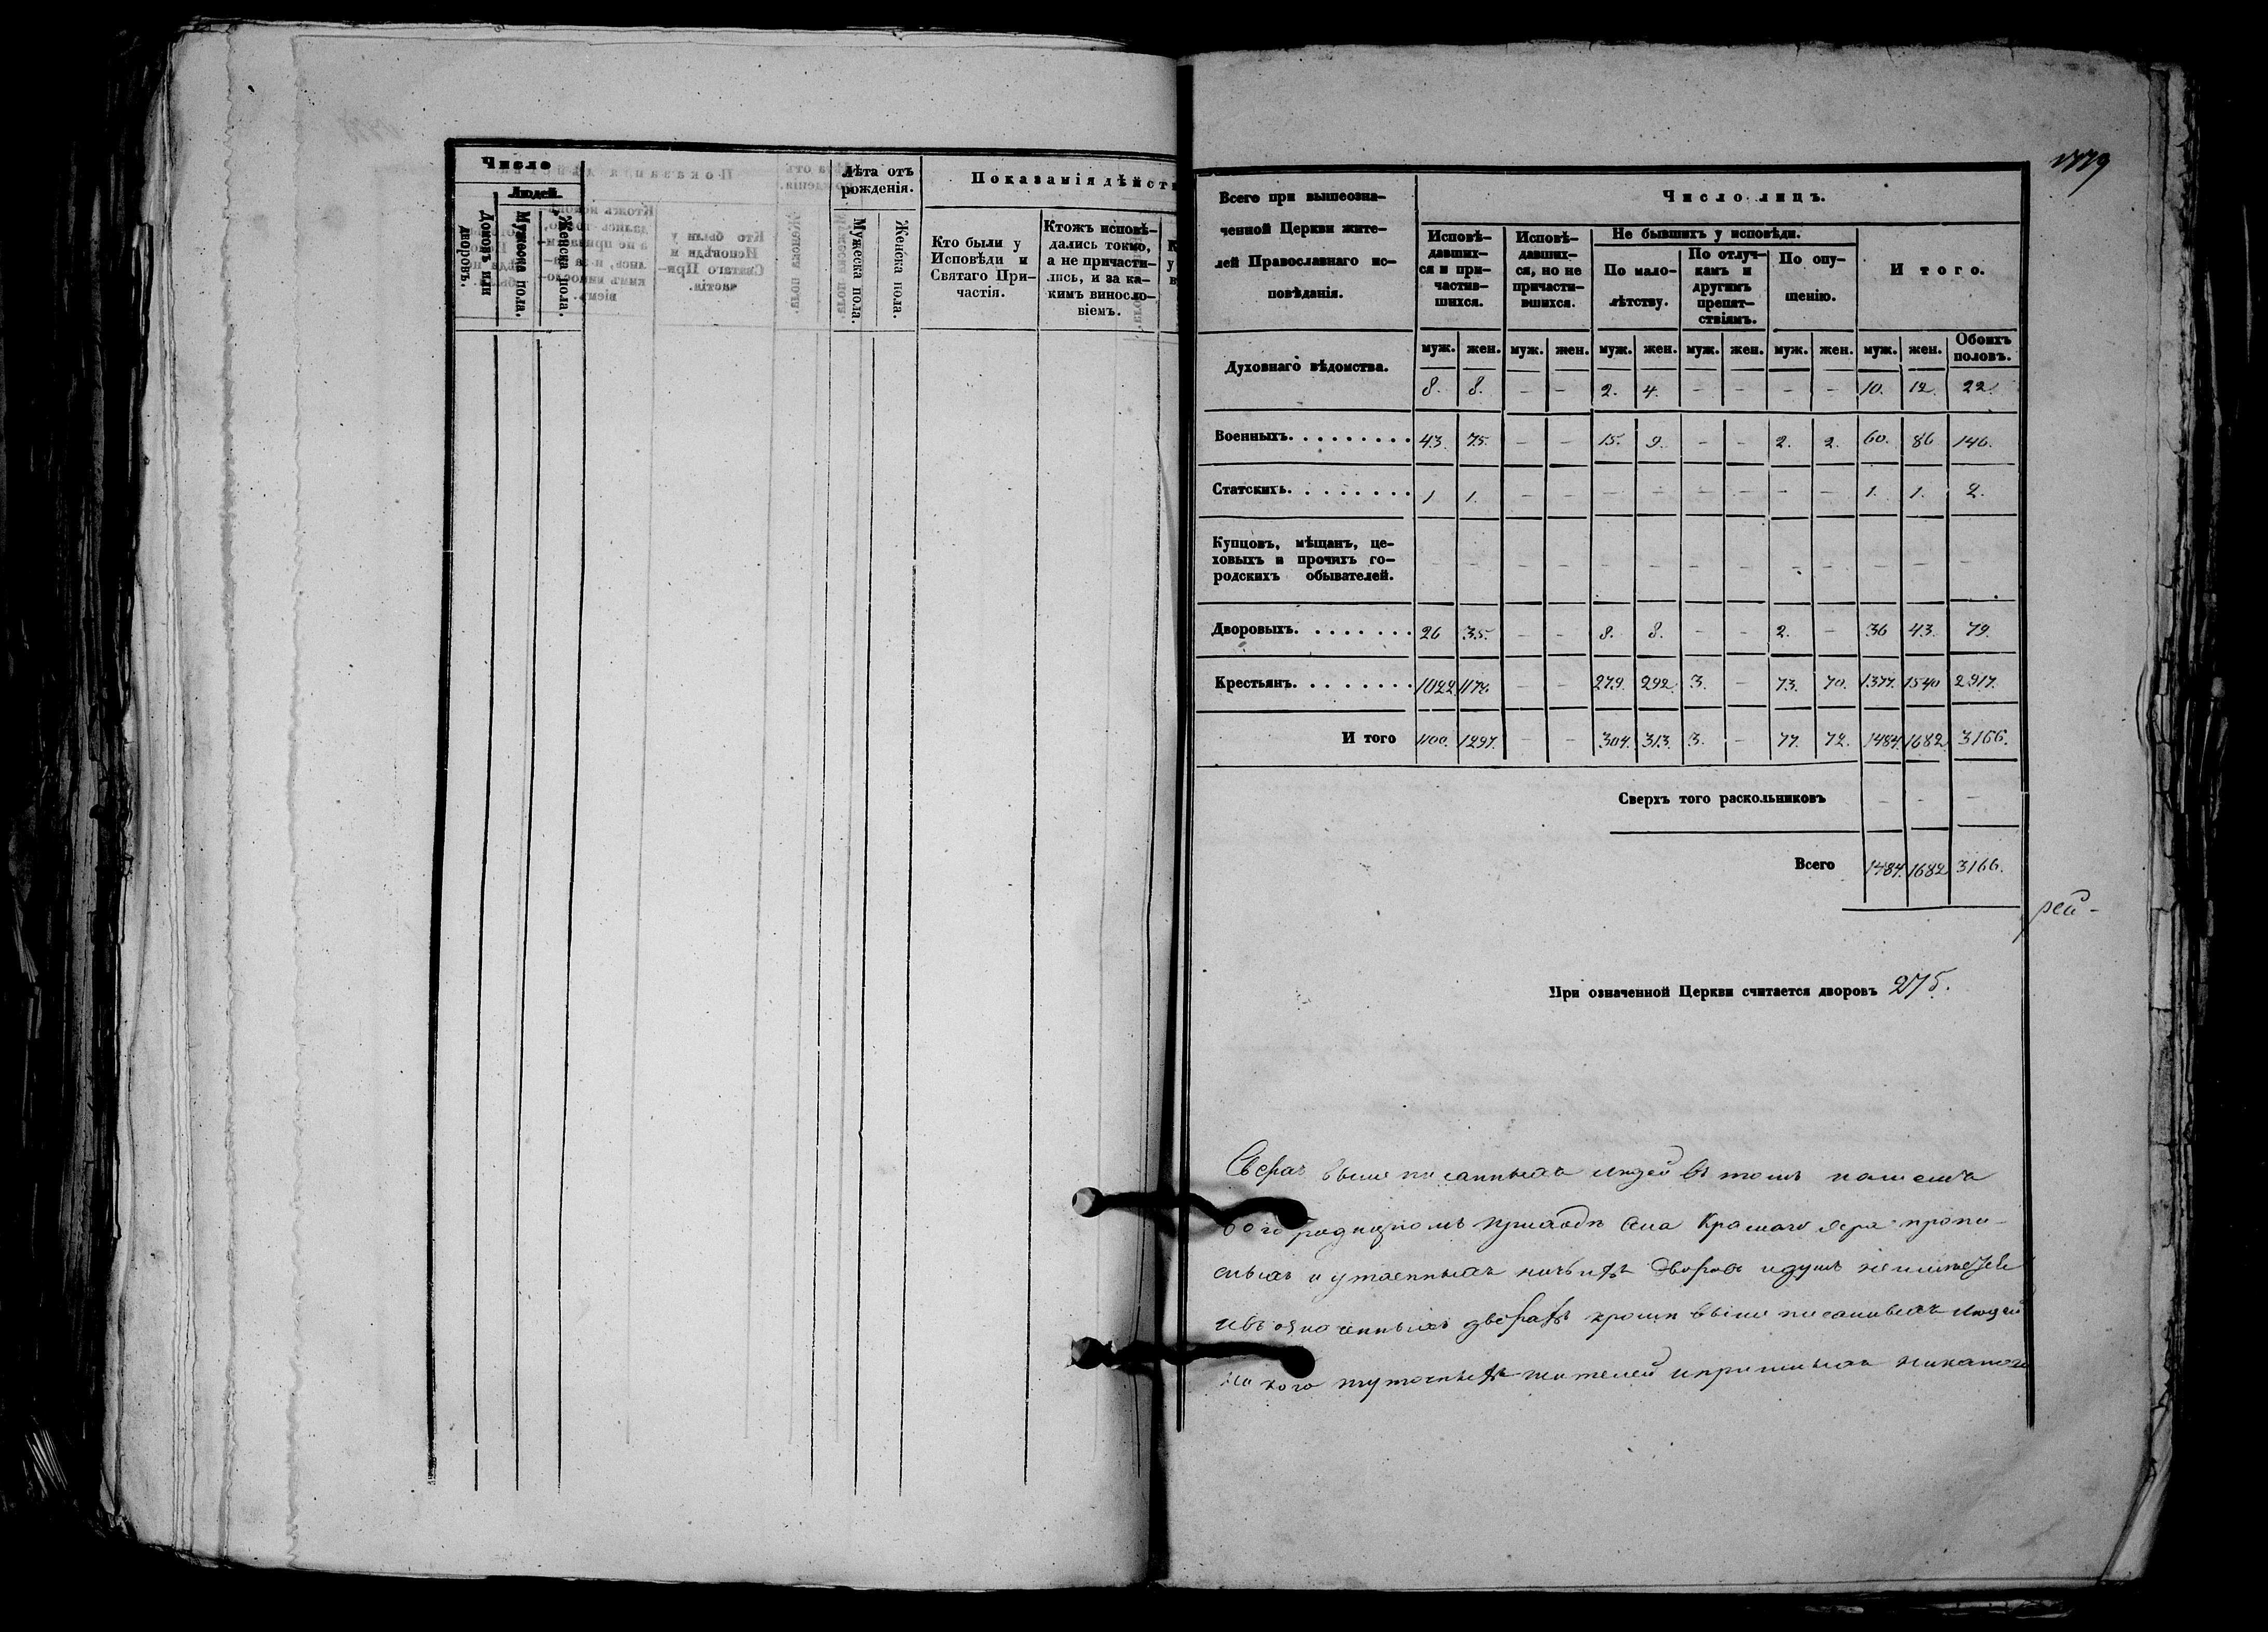 Число
Людей.
Домовъ или дворовъ.
Мужеска пола.
Женска пола.
Лѣта отъ рожденія.
Мужеска пола.
Женска пола.
Показанія дѣйст
Кто были у
Исповѣди и
Святаго При-
частія.
Ктожъ исповѣ-
дались токмо,
а не причасти-
лись, и за ка-
кимъ виносло-
віемъ.
Всего при вышеозна-
ченной Церкви жите-
лей Православнаго ис-
повѣданія.
Число лицъ.
Исповѣ-
давших-
ся и при-
частив-
шихся.
Исповѣ-
давших-
ся, но не
причасти-
вшихся.
Не бывшихъ у исповѣди.
По мало-
лѣтству.
По отлуч-
камъ и
другимъ
препят-
ствіямъ.
По опу-
щенію.
И того.
муж. жен. муж. жен. муж. жен. муж. жен. муж. жен. муж. жен. Обоихъ половъ.
Духовнаго вѣдомства. 8. 8. – – 2. 4. – – – – 10. 12. 22.
Военныхъ. . . . . . . . . 43. 75. – – 15. 9. – – 2. 2. 60. 86 146.
Статскихъ. . . . . . . . 1 1. – – – – – – – – 1. 1. 2.
Купцовъ, мѣщанъ, це-
ховыхъ и прочихъ го-
родскихъ обывателей. – – – – – – – – – – – – –
Дворовыхъ. . . . . . . 26 35. – – 8. 8. – – 2. – 36 43. 79.
Крестьянъ. . . . . . . . 1022 1178. – – 279. 292. 3. – 73. 70. 1377. 1540 2917.
И того 1100. 1297. – – 304. 313. 3. – 77. 72. 1484. 1682. 3166.
Сверхъ того раскольниковъ – – –
Всего 1484. 1682 3166.
При означенной Церкви считается дворовъ 275.
Сверхъ выше писанныхъ людей въ томъ нашемъ
Богородицкомъ приходѣ села Краснаго Яра пропи-
сныхъ и утаенныхъ ничьихъ дворовъ и душъ
и въ означенныхъ дворахъ кромѣ выше писанныхъ людей
никого тутошныхъ жителей и пришлыхъ никакого